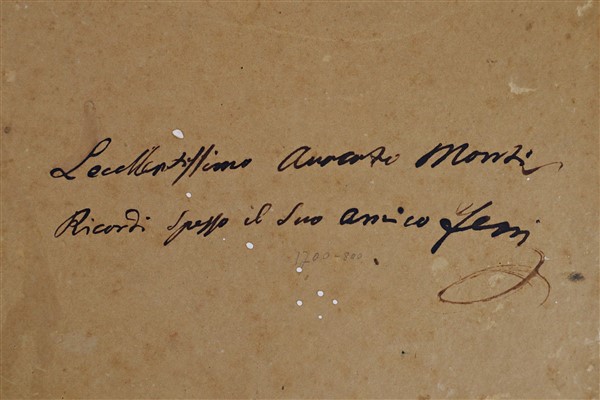 Lecellentissimo Avocato Monti
Ricordi spesso il suo amico
1700-800